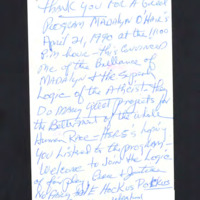 Thank you for a great
Program Madalyn O'Hair's
April 21, 1990 at the 1:00
P.m. hour - this convinced
me of the Brilliance of
Madalyn & the superb
Logic of the Atheists. They
Do many great projects for
the Betterment of the whole
Human Race - Here's hoping
You Listened to the program -
Welcome to Join the Logic
of for
Hocus Pocus